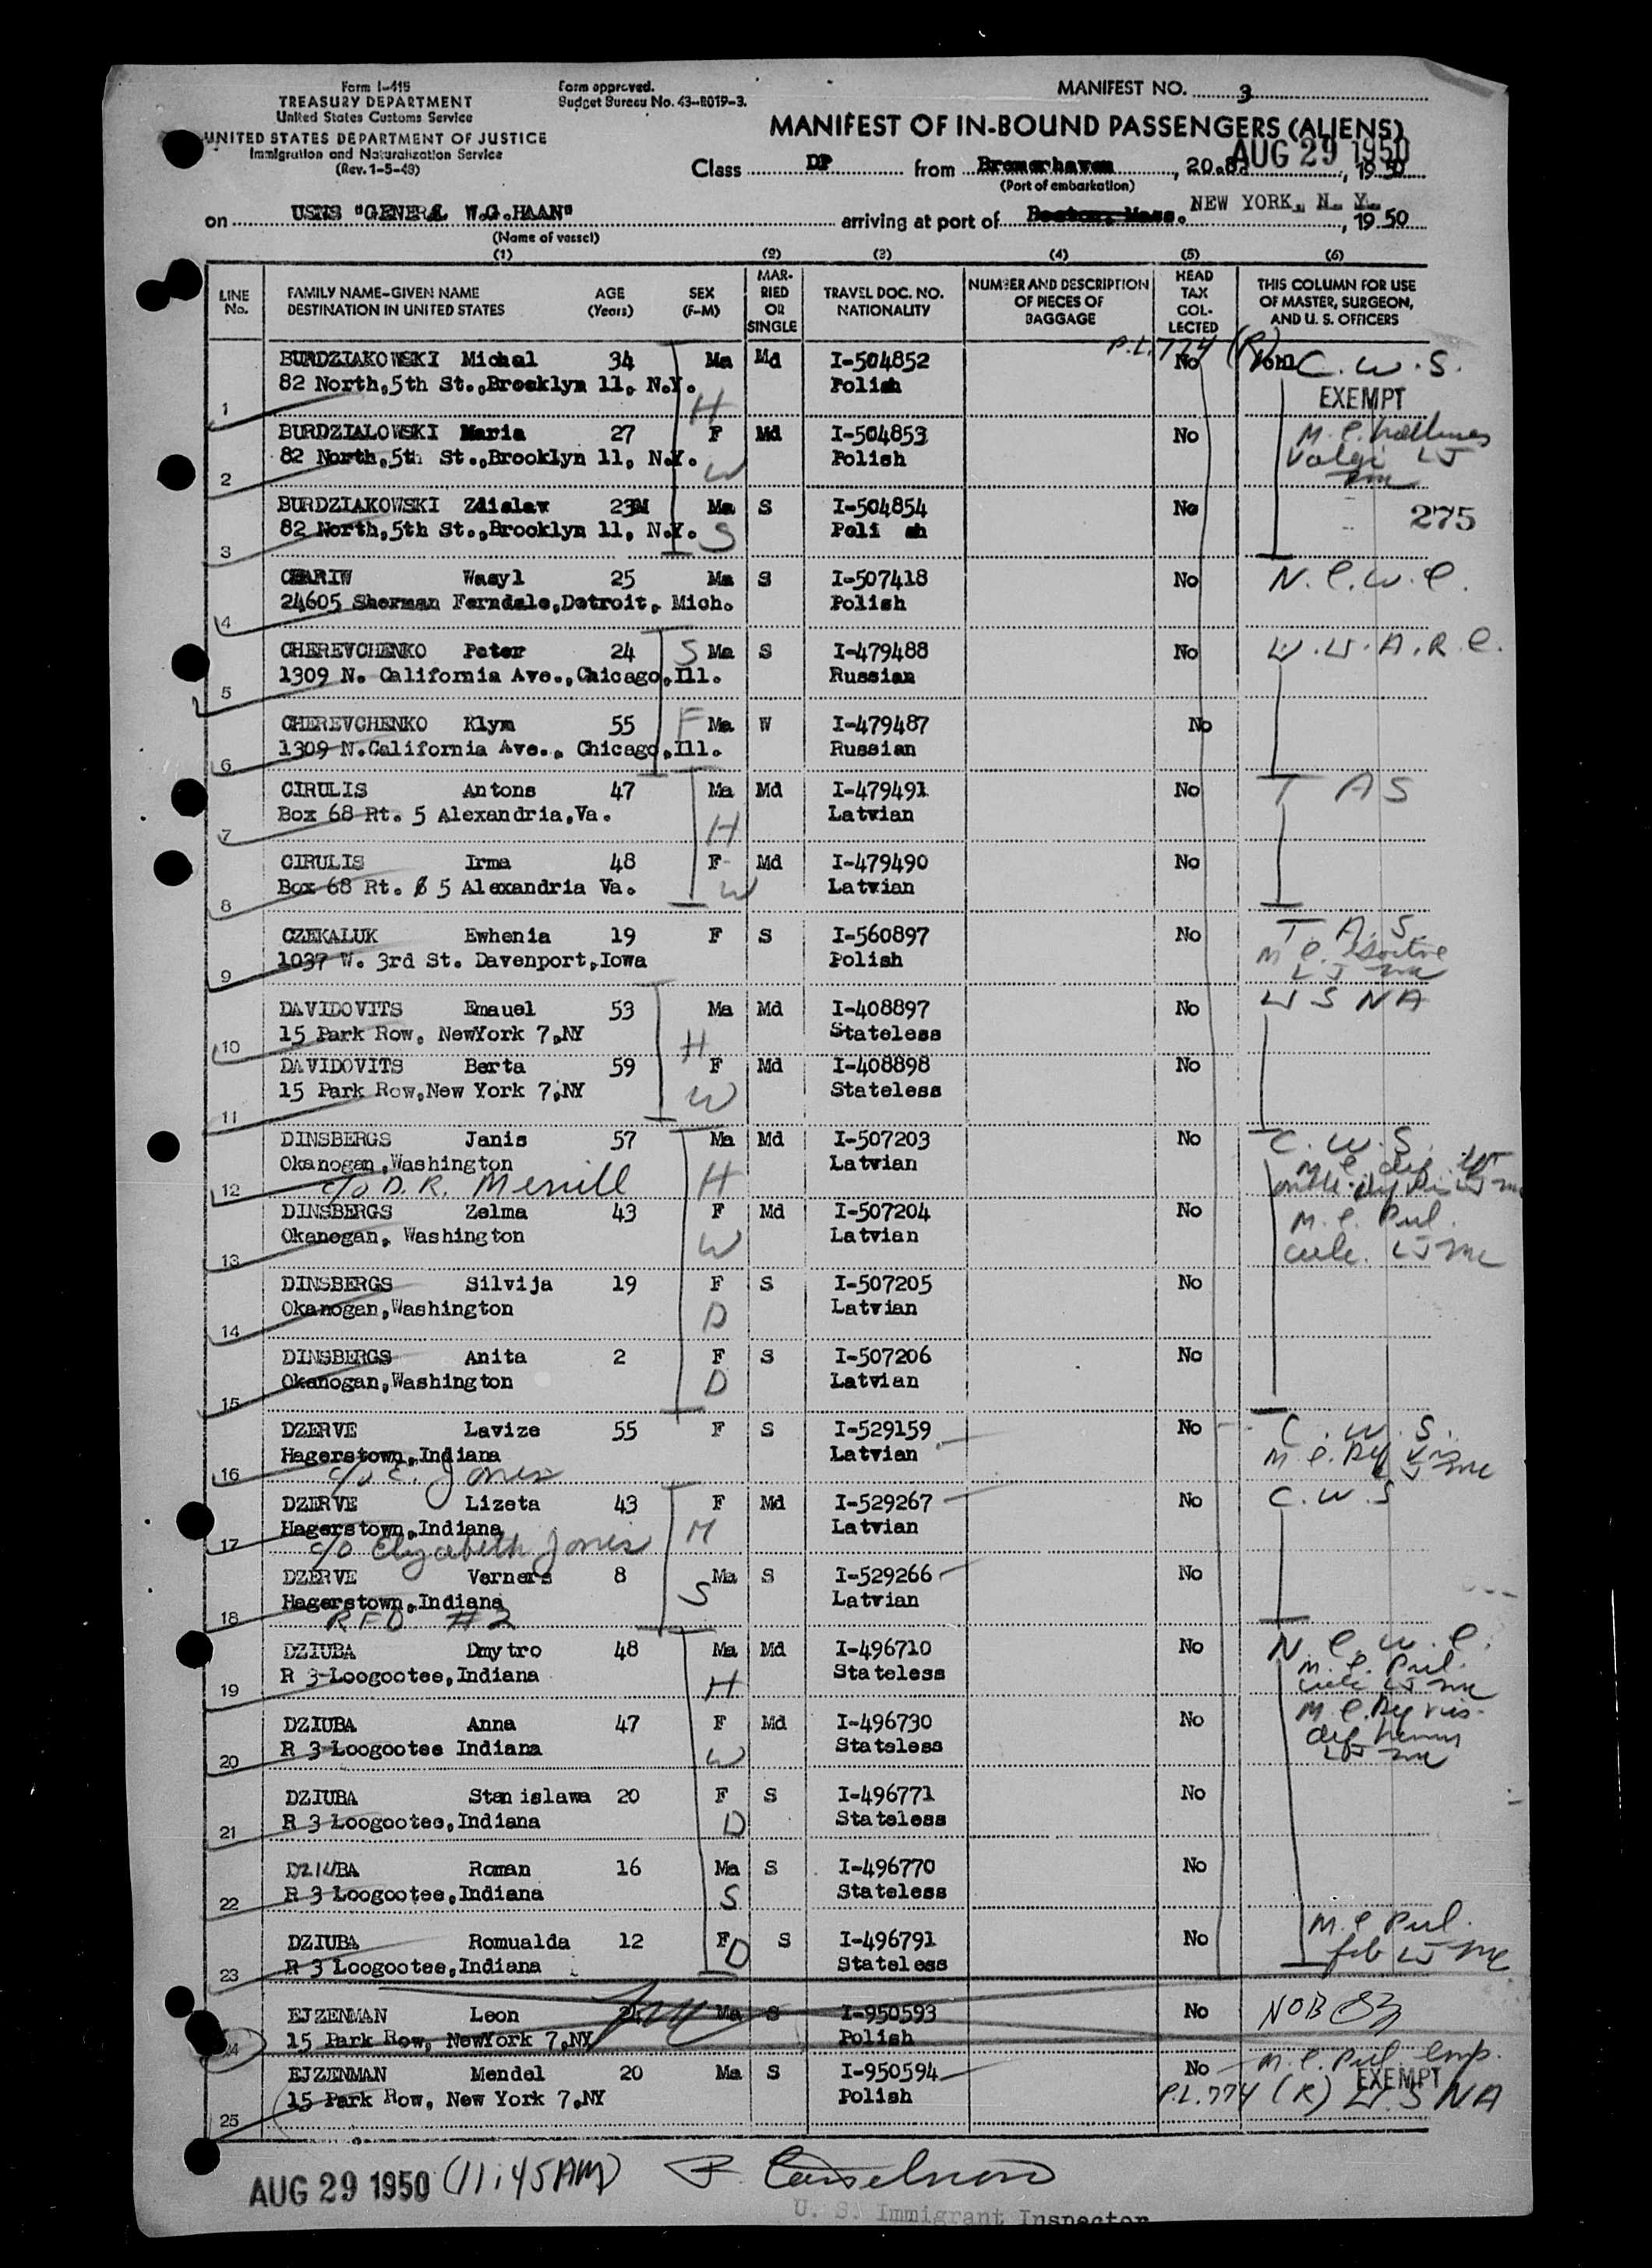 Form I-415
TREASURY DEPARTMENT
United States Customs Service
UNITED STATES DEPARTMENT OF JUSTICE
Immigration and Naturalization Service
(Rev. 1-5-49)
Form approved.
Budget Bureau No. 43-R019-3.
MANIFEST NO. 3
MANIFEST OF IN-BOUND PASSENGERS (ALIENS)
AUG 29 1950
Class DP from Bremerhaven, 20.8., 1950
(Port of embarkation)
on USNS "GENERAL W.G.HAAN" arriving at port of Boston, Mass. NEW YORK, N. Y., 1950
(Name of vessel)
(1) (2) (3) (4) (5) (6)
LINE No. FAMILY NAME-GIVEN NAME DESTINATION IN UNITED STATES AGE (Years) SEX (F-M) MARRIED OR SINGLE TRAVEL DOC. NO. NATIONALITY NUMBER AND DESCRIPTION OF PIECES OF BAGGAGE HEAD TAX COLLECTED THIS COLUMN FOR USE OF MASTER, SURGEON, AND U. S. OFFICERS
P.L. 774 (R)
BURDZIAKOWSKI Michal 34 Ma Md I-504852 No C.W.S.
82 North,5th St.,Brooklyn 11, N.Y. Polish EXEMPT
1 H
BURDZIALOWSKI Maria 27 F Md I-504853 No M.C.
82 North,5th St.,Brooklyn 11, N.Y. Polish
2 W
BURDZIAKOWSKI Zdislaw 23M Ma S I-504854 No 275
82 North,5th St.,Brooklyn 11, N.Y. Poli sh
3 S
CHARIW Wasyl 25 Ma S I-507418 No N.C.W.C.
24605 Sherman Ferndale,Detroit, Mich. Polish
4
CHEREVCHENKO Peter 24 S Ma S I-479488 No
1309 N. California Ave.,Chicago,Ill. Russian
5
CHEREVCHENKO Klym 55 F Ma W I-479487 No
1309 N.California Ave., Chicago,Ill. Russian
6
CIRULIS Antons 47 Ma Md I-479491 No T A S
Box 68 Rt. 5 Alexandria,Va. Latvian
7 H
CIRULIS Irma 48 F Md I-479490 No
Box 68 Rt. 5 Alexandria Va. Latvian
8 W
CZEKALUK Ewhenia 19 F S I-560897 No T.A.S.
1037 W. 3rd St. Davenport,Iowa Polish M.C.
9
DAVIDOVITS Emauel 53 Ma Md I-408897 No U S N A
15 Park Row, NewYork 7,NY Stateless
10 H
DAVIDOVITS Berta 59 F Md I-408898 No
15 Park Row,New York 7,NY Stateless
11 W
DINSBERGS Janis 57 Ma Md I-507203 No C.W.S.
Okanogan,Washington Latvian
12 c/o D.R. Merrill H
DINSBERGS Zelma 43 F Md I-507204 No M.C. Pul.
Okanogan, Washington Latvian
13 W
DINSBERGS Silvija 19 F S I-507205 No
Okanogan,Washington Latvian
14 D
DINSBERGS Anita 2 F S I-507206 No
Okanogan,Washington Latvian
15 D
DZERVE Lavize 55 F S I-529159 No C.W.S.
Hagerstown,Indiana Latvian
16 c/o E. Jones
DZERVE Lizeta 43 F Md I-529267 No C.W.S
Hagerstown,Indiana Latvian M
17 c/o Elizabeth Jones
DZERVE Verners 8 Ma S I-529266 No
Hagerstown,Indiana Latvian S
18 RFD #2
DZIUBA Dmytro 48 Ma Md I-496710 No N.C.W.C.
R 3 Loogootee,Indiana Stateless M.C. Pul.
19 H
DZIUBA Anna 47 F Md I-496730 No
R 3 Loogootee Indiana Stateless
20 W
DZIUBA Stanislawa 20 F S I-496771 No
R 3 Loogootee,Indiana Stateless
21 D
DZIUBA Roman 16 Ma S I-496770 No
R 3 Loogootee,Indiana Stateless
22 S
DZIUBA Romualda 12 F D S I-496791 No M.C. Pul.
R 3 Loogootee,Indiana Stateless
23
EJZENMAN Leon Ma S I-950593 No NOB
15 Park Row, NewYork 7,NY Polish
24
EJZENMAN Mendel 20 Ma S I-950594 No M.C. Pul. emp.
15 Park Row, New York 7,NY Polish EXEMPT
25 P.L.774 (R) U.S NA
AUG 29 1950 (11:45AM)
U. S. Immigrant Inspector